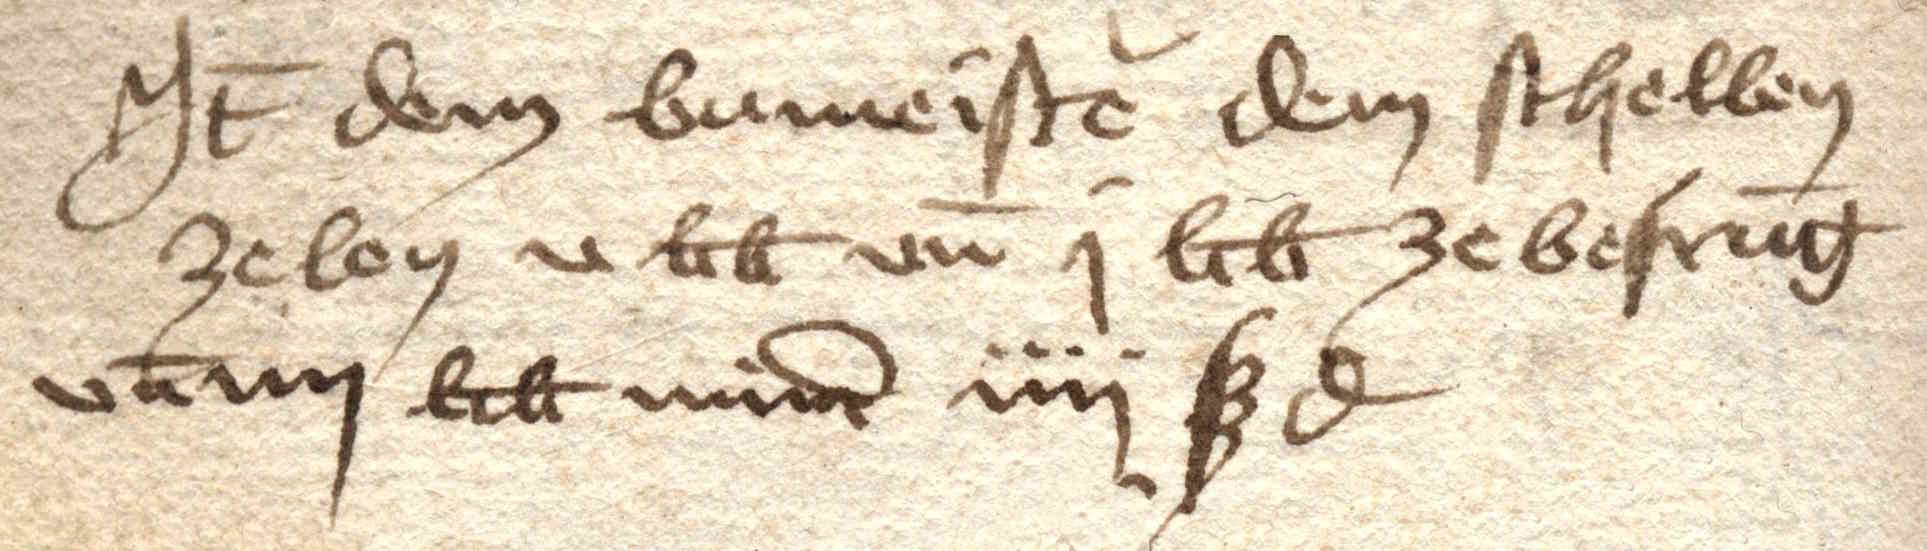 Jt̄ dem bumeiſter dem ſchellen
ze len v lb vn̄ j lb ze beſrūg
vn̄ iiij lb mīnr iiij ß d